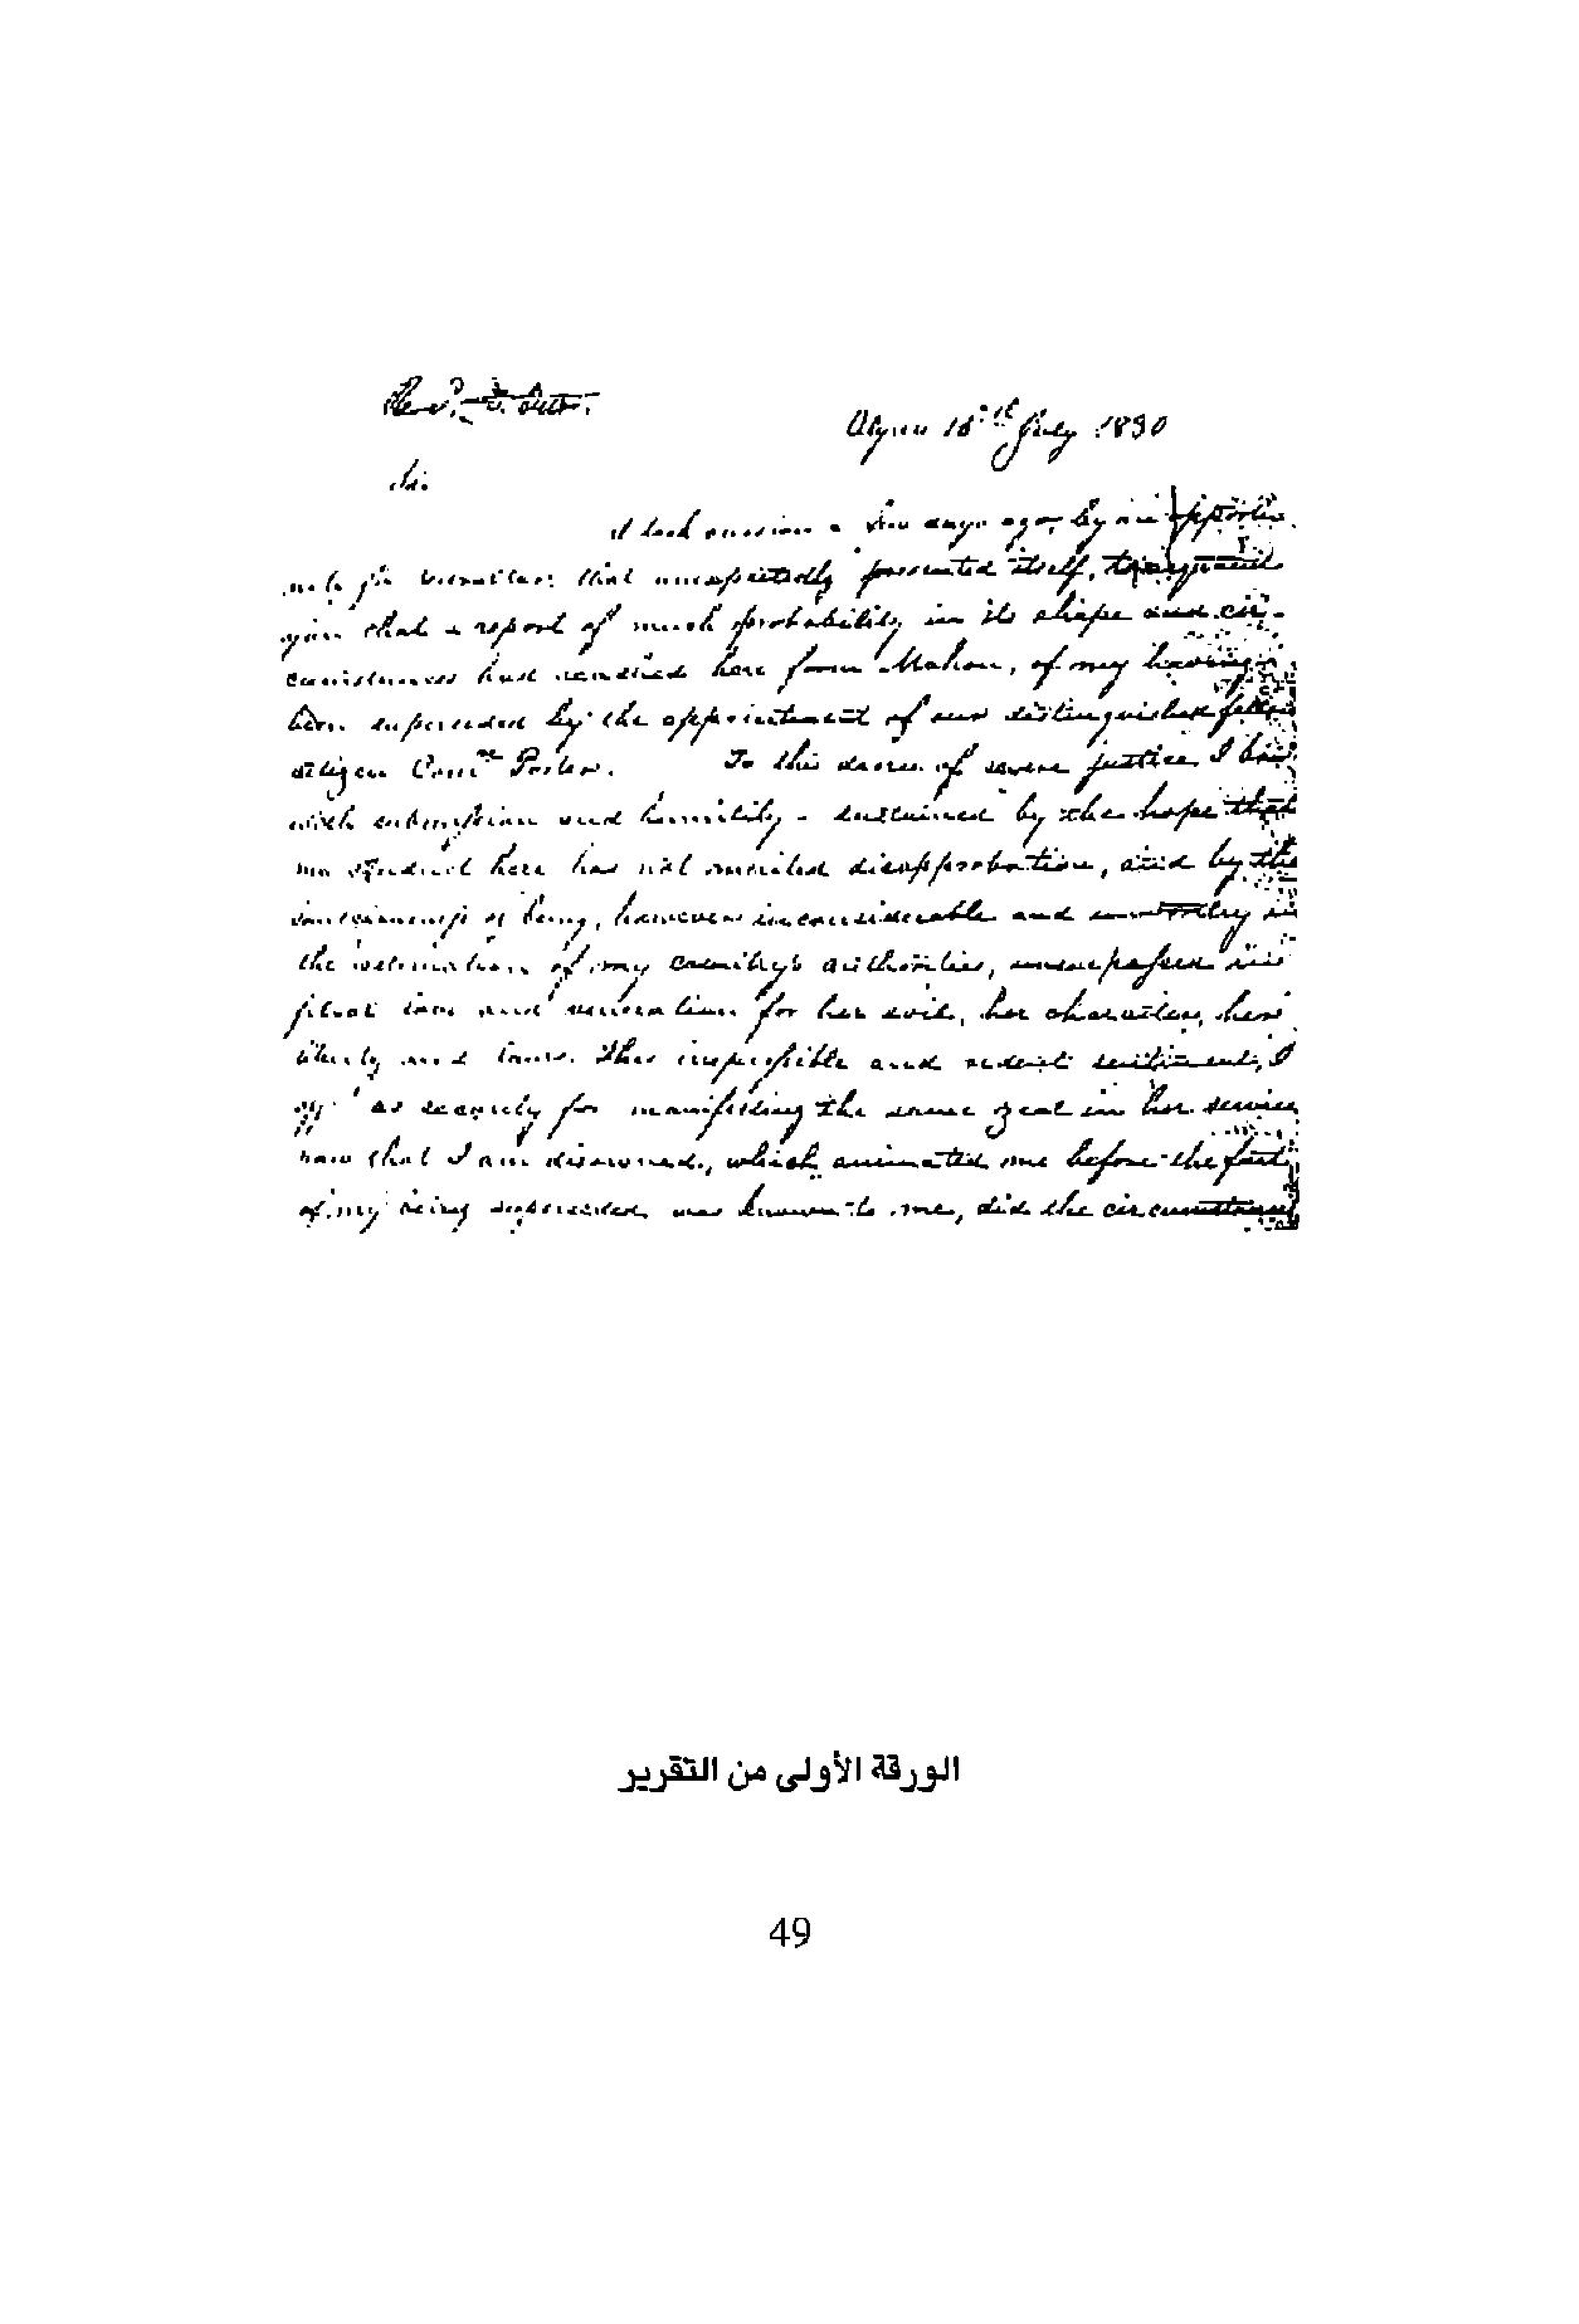 Rec.d
Algiers 18th July 1830
Sir
I took occasion a few days ago, by an opportu
that unexpectedly presented itself, to
you that a report of much probability in its shape and cir-
cumstances had reached here from Mahon, of my having
been superseded by the appointment of our distinguished fellow
citizen Com.re Porter. To this decree of severe justice I bow
with submission and humility - sustained by the hope that
my conduct here has not merited disapprobation, and by the
consciousness of being, however inconsiderable and unworthy in
the estimation of my country's authorities, unsurpassed in
filial love and veneration for her soil, her character, her
liberty and laws. This imperishible and ardent sentiment, I
as security for manifesting the same zeal in her service
now that I am disowned, which animated me before the fact
of my being superseded was known to me, did the circumstances
الورقة الأولى من التقرير
49